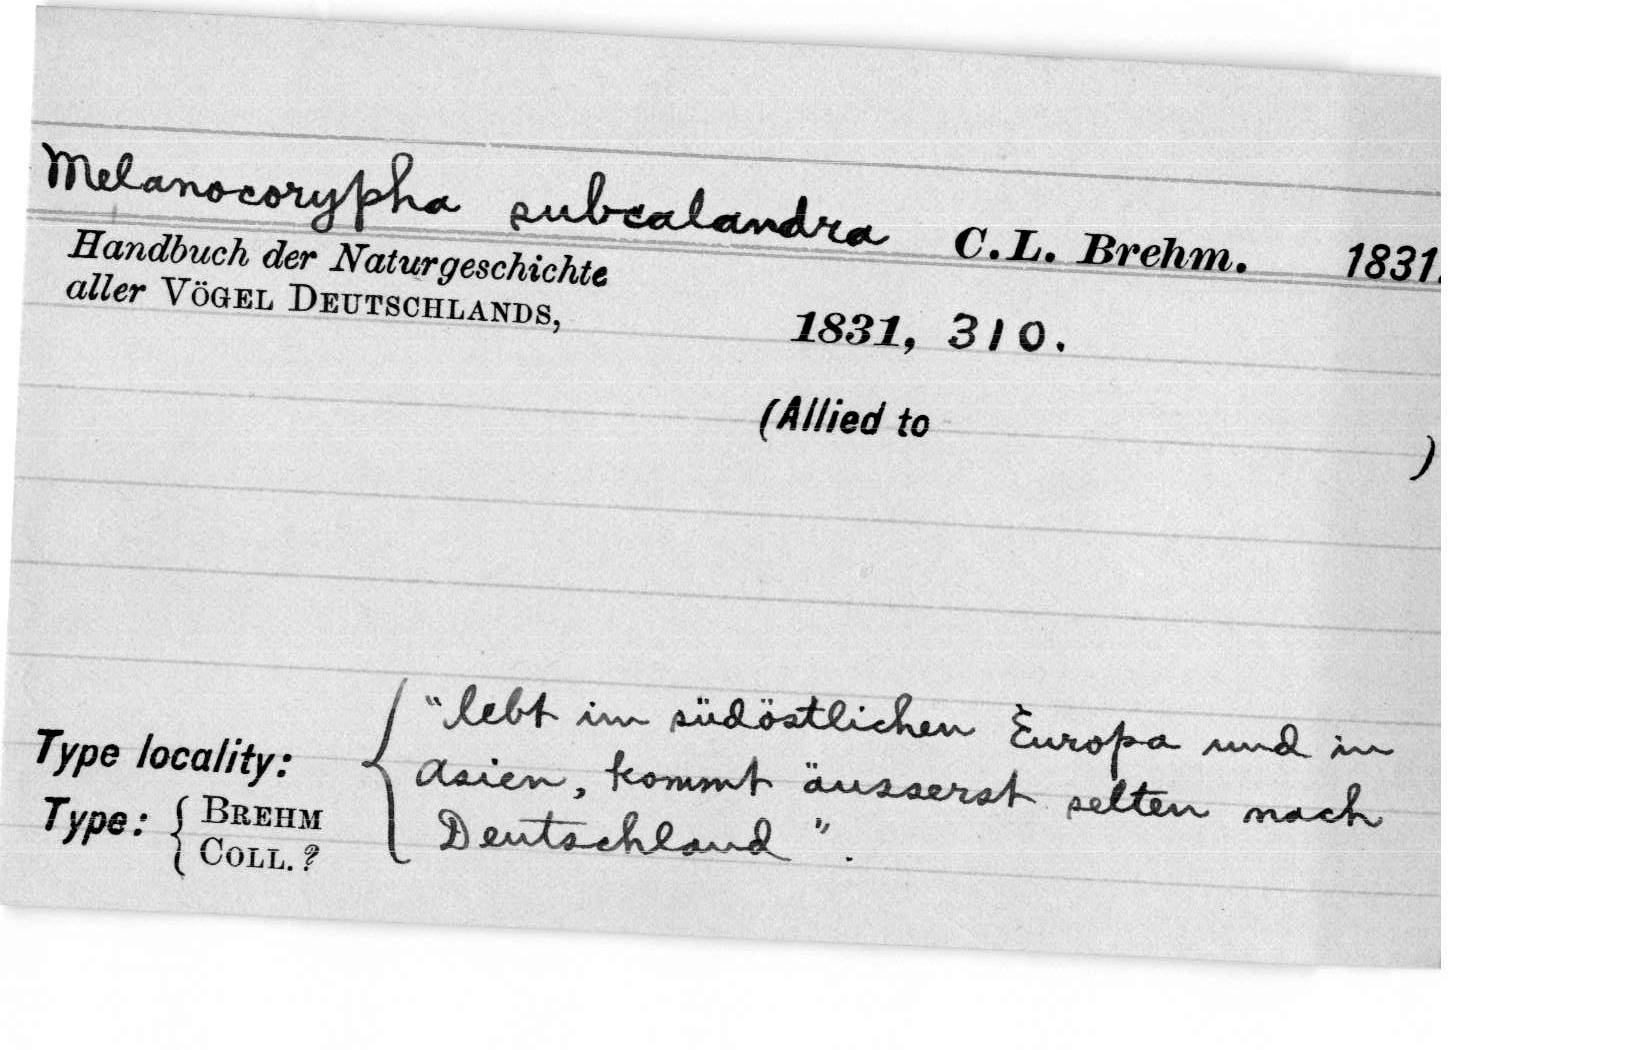 Melanocorypha subcalandra C.L. Brehm. 1831.
Handbuch der Naturgeschichte
aller VÖGEL DEUTSCHLANDS,
1831, 310.
(Allied to )
"lebt im südöstlichen Europa und in
Asien, kommt äusserst selten nach
Deutschland".
Type locality:
Type: { BREHM
COLL. ?